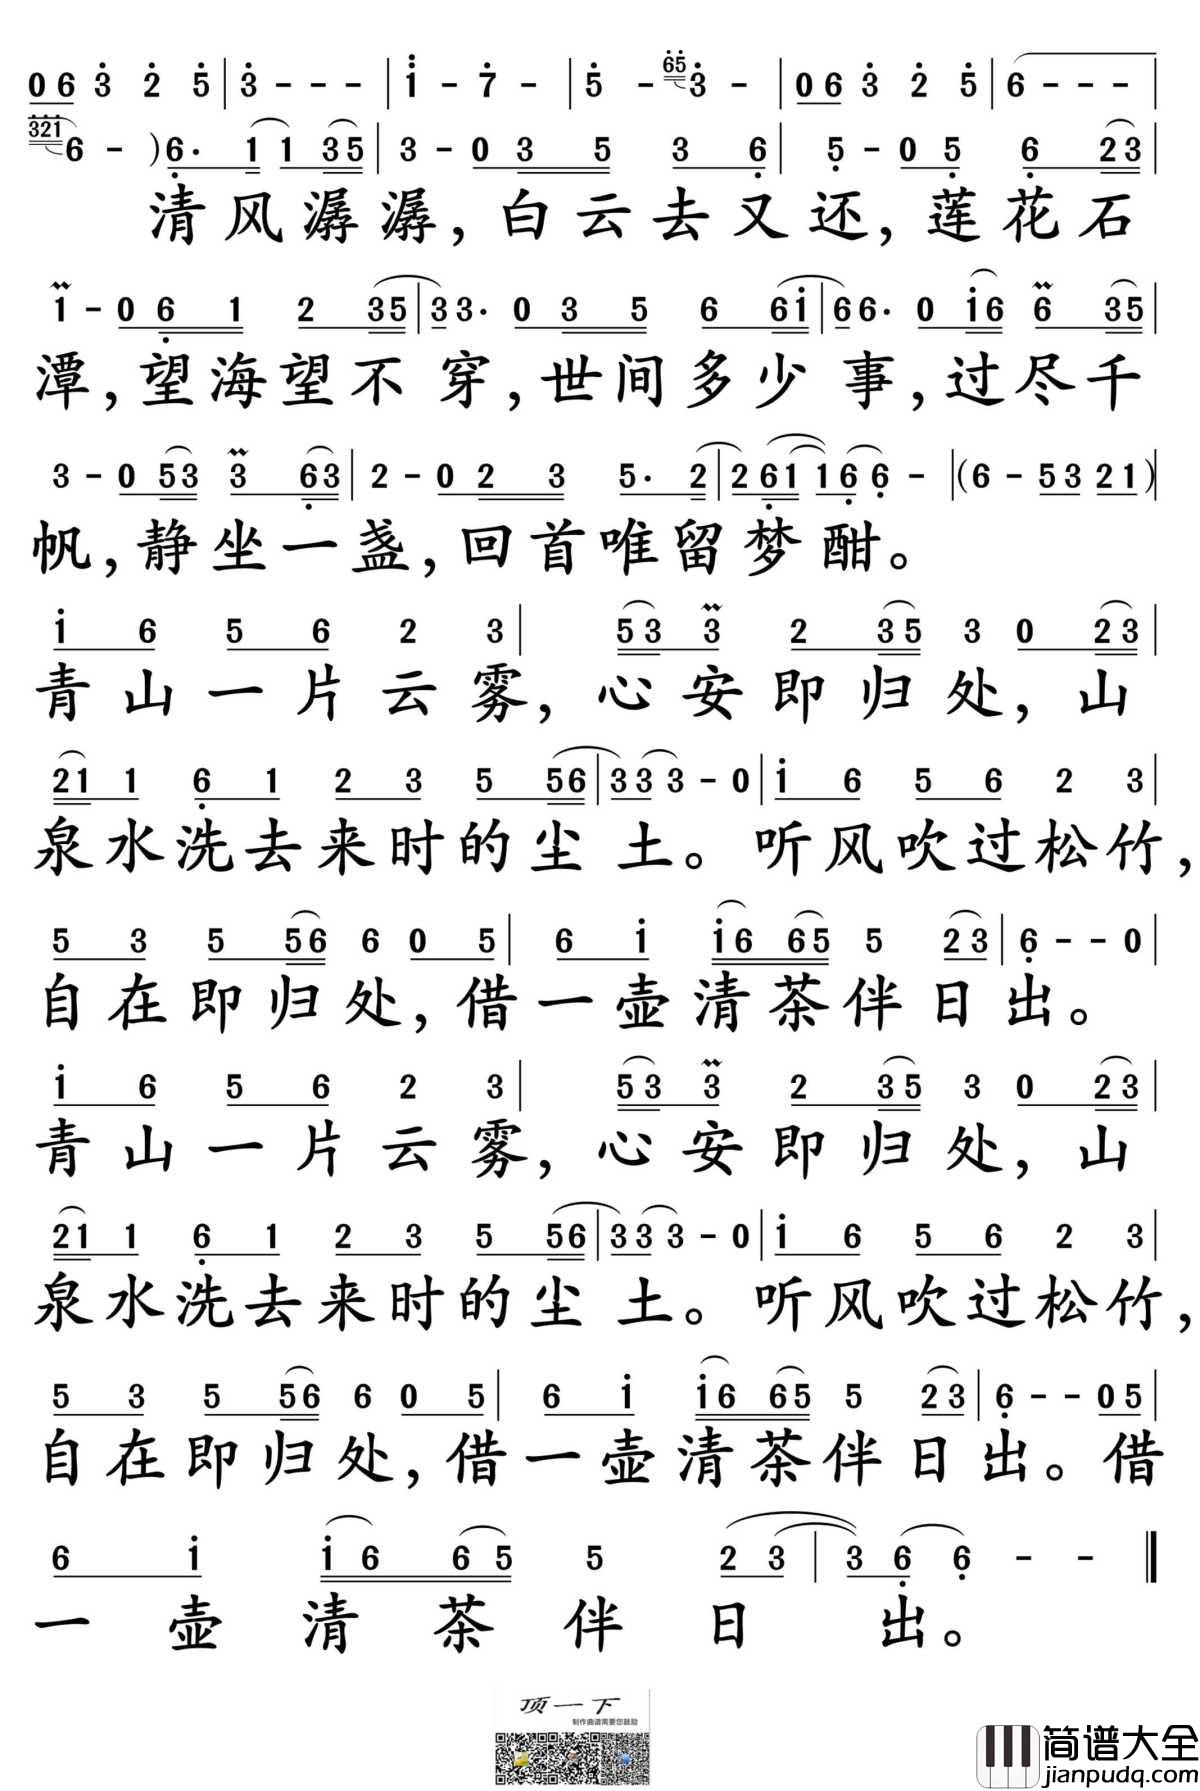 0 6 3 2 5 | 3 - - - | 1 - 7 - | 5 - 65 3 - | 0 6 3 2 5 | 6 - - - |
321 6 - ) 6· 1 1 3 5 | 3 - 0 3 5 3 6 | 5 - 0 5 6 2 3 |
清风潺潺,白云去又还,莲花石
1 - 0 6 1 2 3 5 | 3 3· 0 3 5 6 6 1 | 6 6· 0 1 6 6 3 5 |
潭,望海望不穿,世间多少事,过尽千
3 - 0 5 3 3 6 3 | 2 - 0 2 3 5· 2 | 2 6 1 1 6 6 - | ( 6 - 5 3 2 1 ) |
帆,静坐一盏,回首唯留梦酣。
1 6 5 6 2 3 | 5 3 3 2 3 5 3 0 2 3 |
青山一片云雾,心安即归处,山
2 1 1 6 1 2 3 5 5 6 | 3 3 3 - 0 | 1 6 5 6 2 3 |
泉水洗去来时的尘土。听风吹过松竹,
5 3 5 5 6 6 0 5 | 6 1 1 6 6 5 5 2 3 | 6 - - 0 |
自在即归处,借一壶清茶伴日出。
1 6 5 6 2 3 | 5 3 3 2 3 5 3 0 2 3 |
青山一片云雾,心安即归处,山
2 1 1 6 1 2 3 5 5 6 | 3 3 3 - 0 | 1 6 5 6 2 3 |
泉水洗去来时的尘土。听风吹过松竹,
5 3 5 5 6 6 0 5 | 6 1 1 6 6 5 5 2 3 | 6 - - 0 5 |
自在即归处,借一壶清茶伴日出。借
6 1 1 6 6 5 5 2 3 | 3 6 6 - - ‖
一壶清茶伴日出。
顶一下
制作曲谱需要您鼓励
简谱大全
jianpudq.com